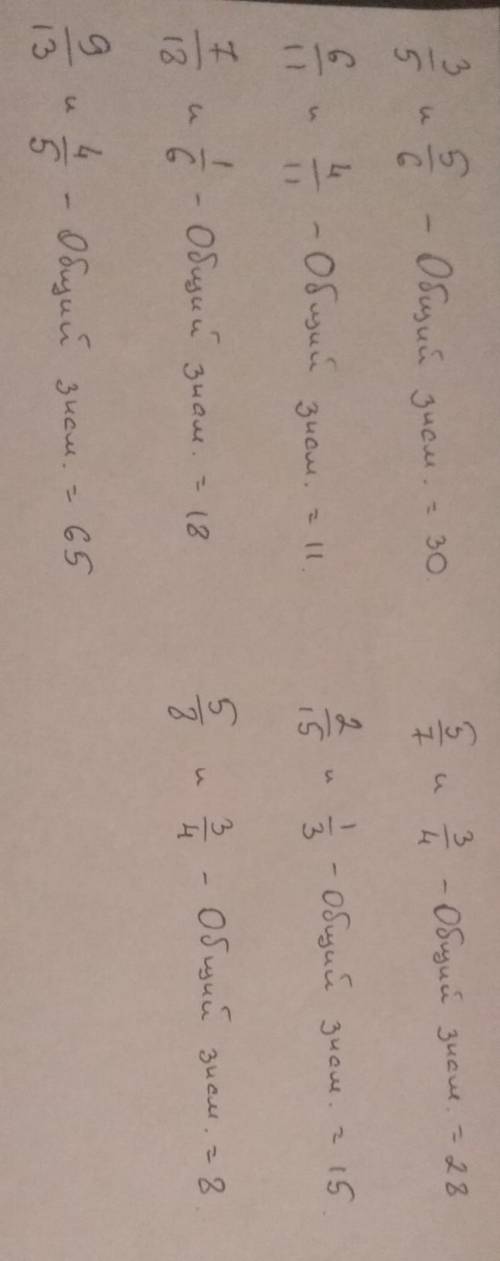 3/5 и 5/6 - Общий знам. = 30.
6/11 и 4/11 - Общий знам. = 11.
7/18 и 1/6 - Общий знам. = 18
9/13 и 4/5 - Общий знам. = 65
5/7 и 3/4 - Общий знам. = 28
2/15 и 1/3 - Общий знам. = 15.
5/8 и 3/4 - Общий знам. = 8.